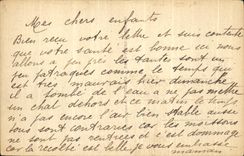 Mes chers enfants
Bien reçu votre lettre et suis contente
que votre santé est bonne ici nous
allons a peu pres les tantes sont un
peu patraques comme le temps qui
est tres mauvais hier dimanche
il a tombé de l'eau a ne pas mettre
un chat dehors et ce matin le temps
n'a pas encore l'air bien stable aussi
tous sont contrariés car les moissons
ne sont pas rentrées et c'est dommage
car la récolte est belle je vous embrasse
maman